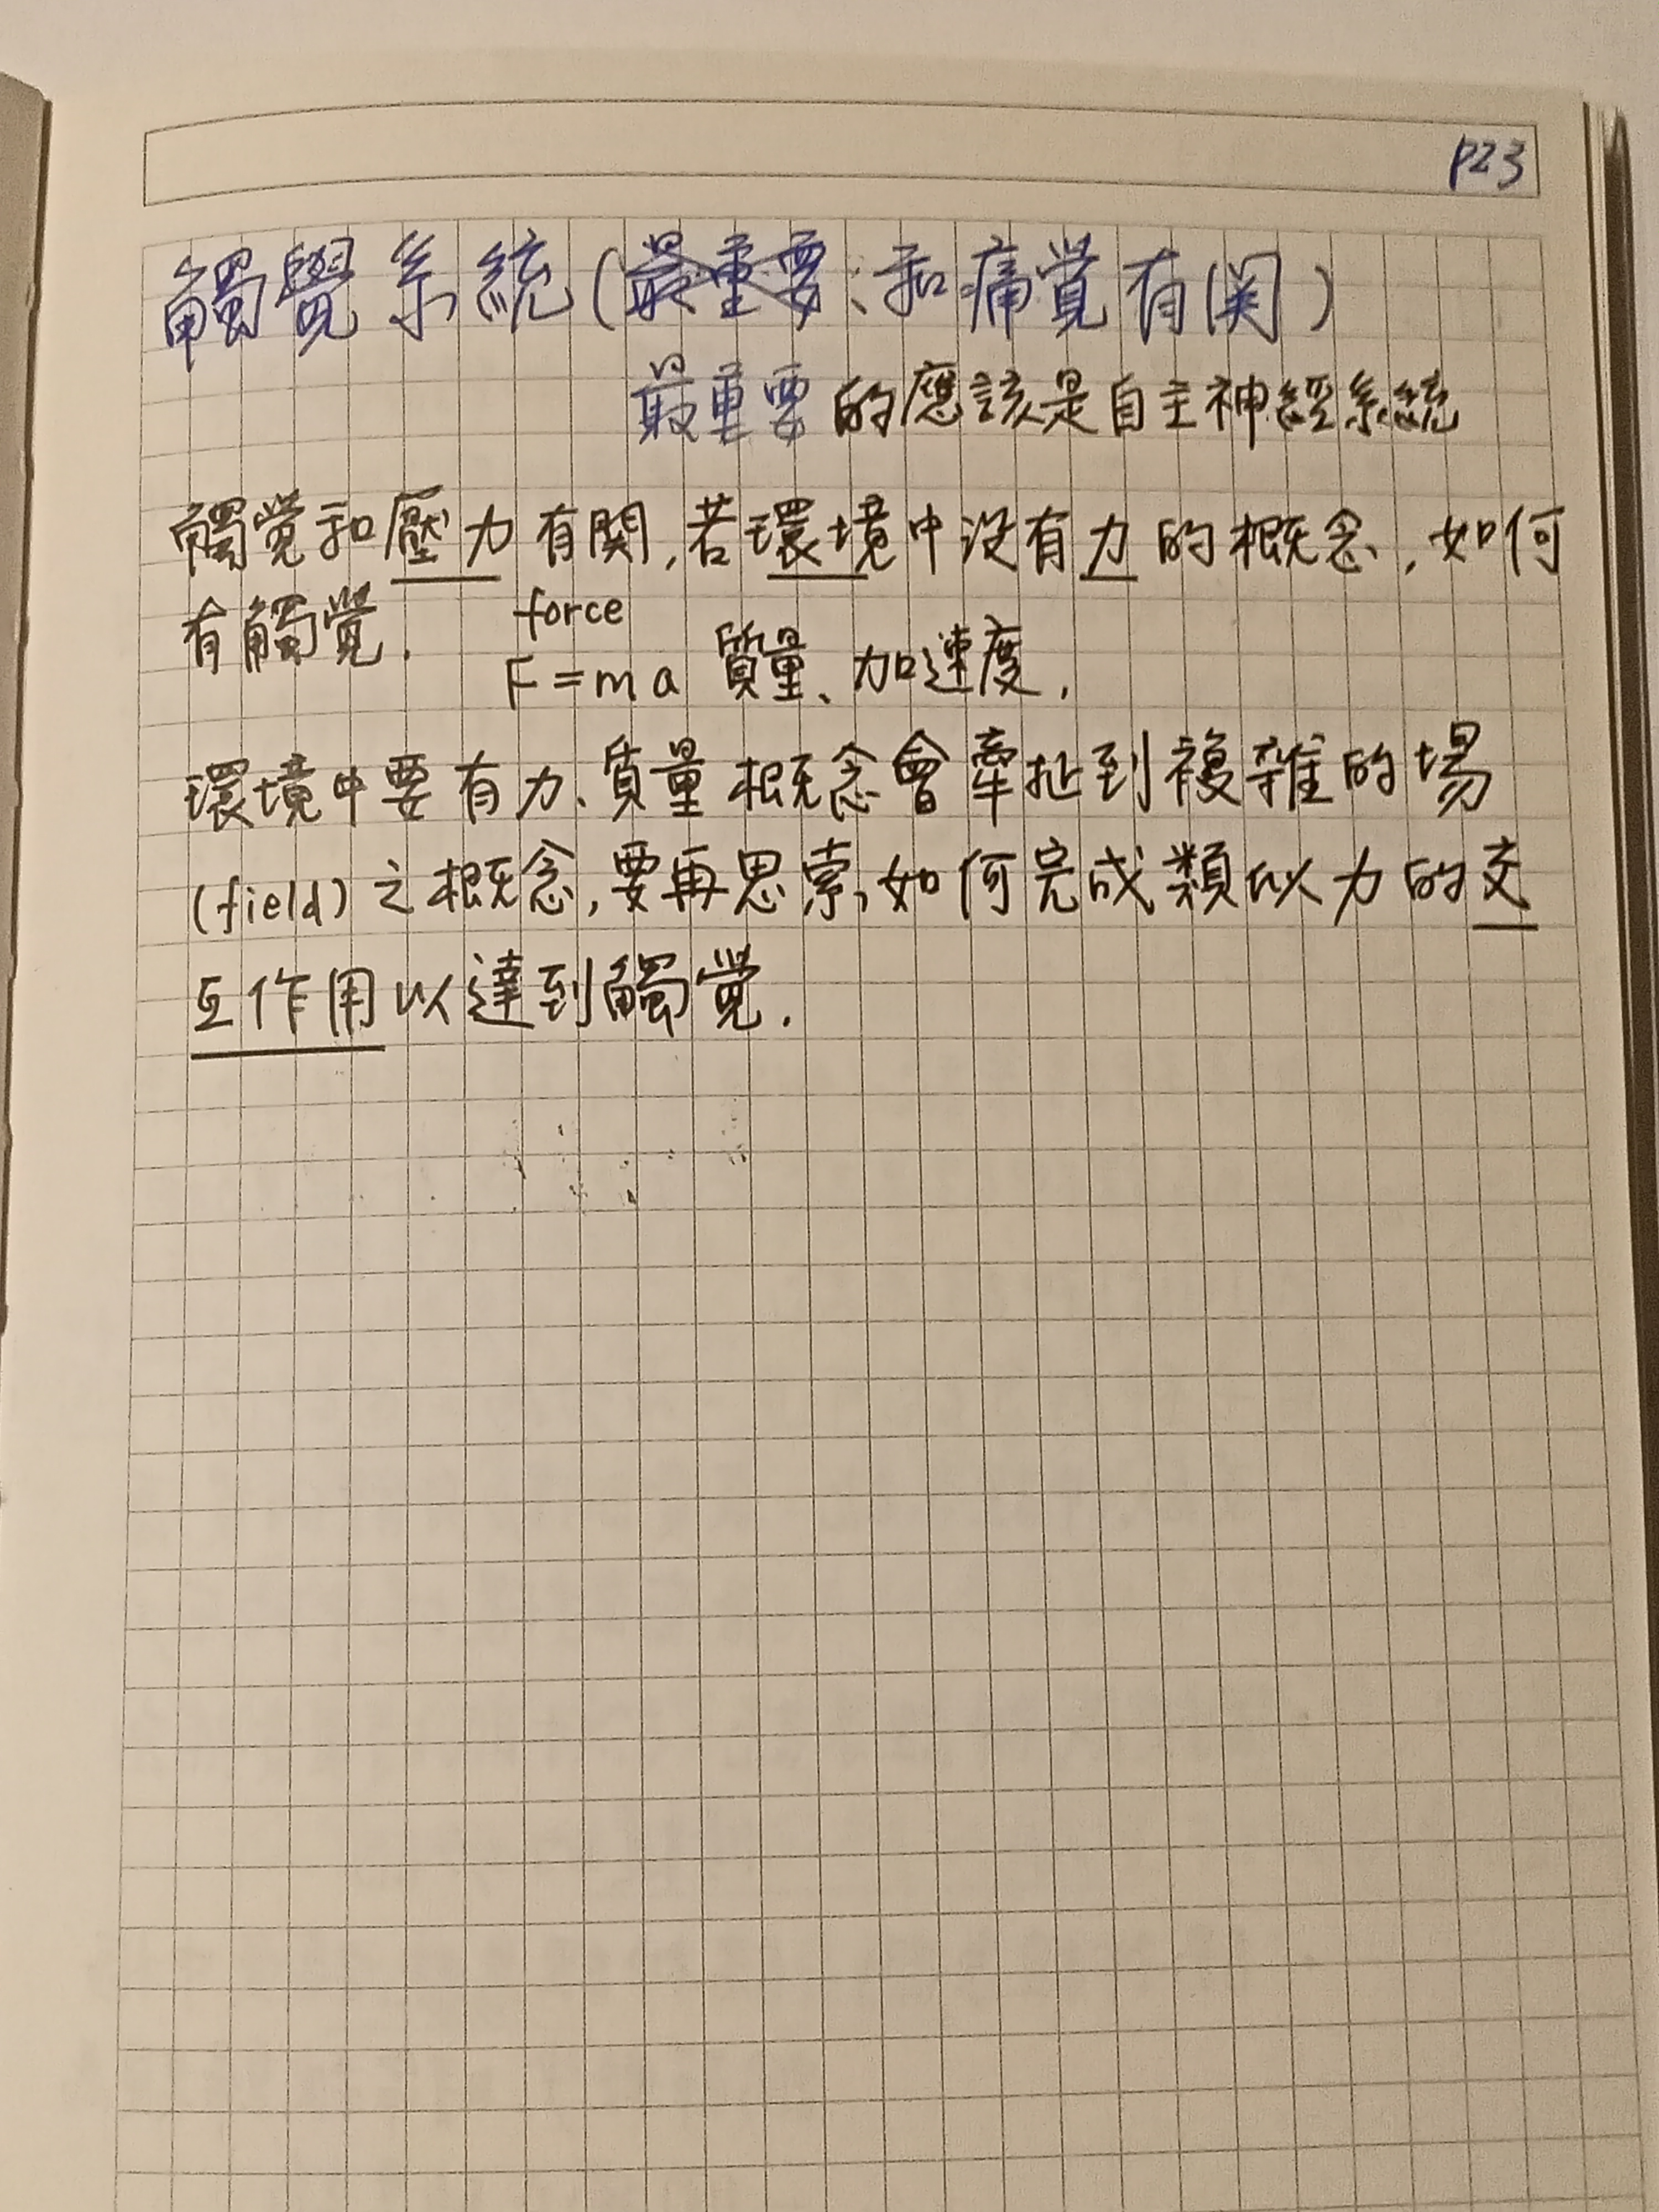 P23
觸覺系統(最重要、和痛覚有関)
最重要的應該是自主神經系統
觸覚和壓力有関,若環境中没有力的概念,如何
有觸覚.
force
F=ma 質量、加速度,
環境中要有力、質量概念會牽扯到複雜的場
(field)之概念,要再思索,如何完成類似力的交
互作用以達到觸覚.